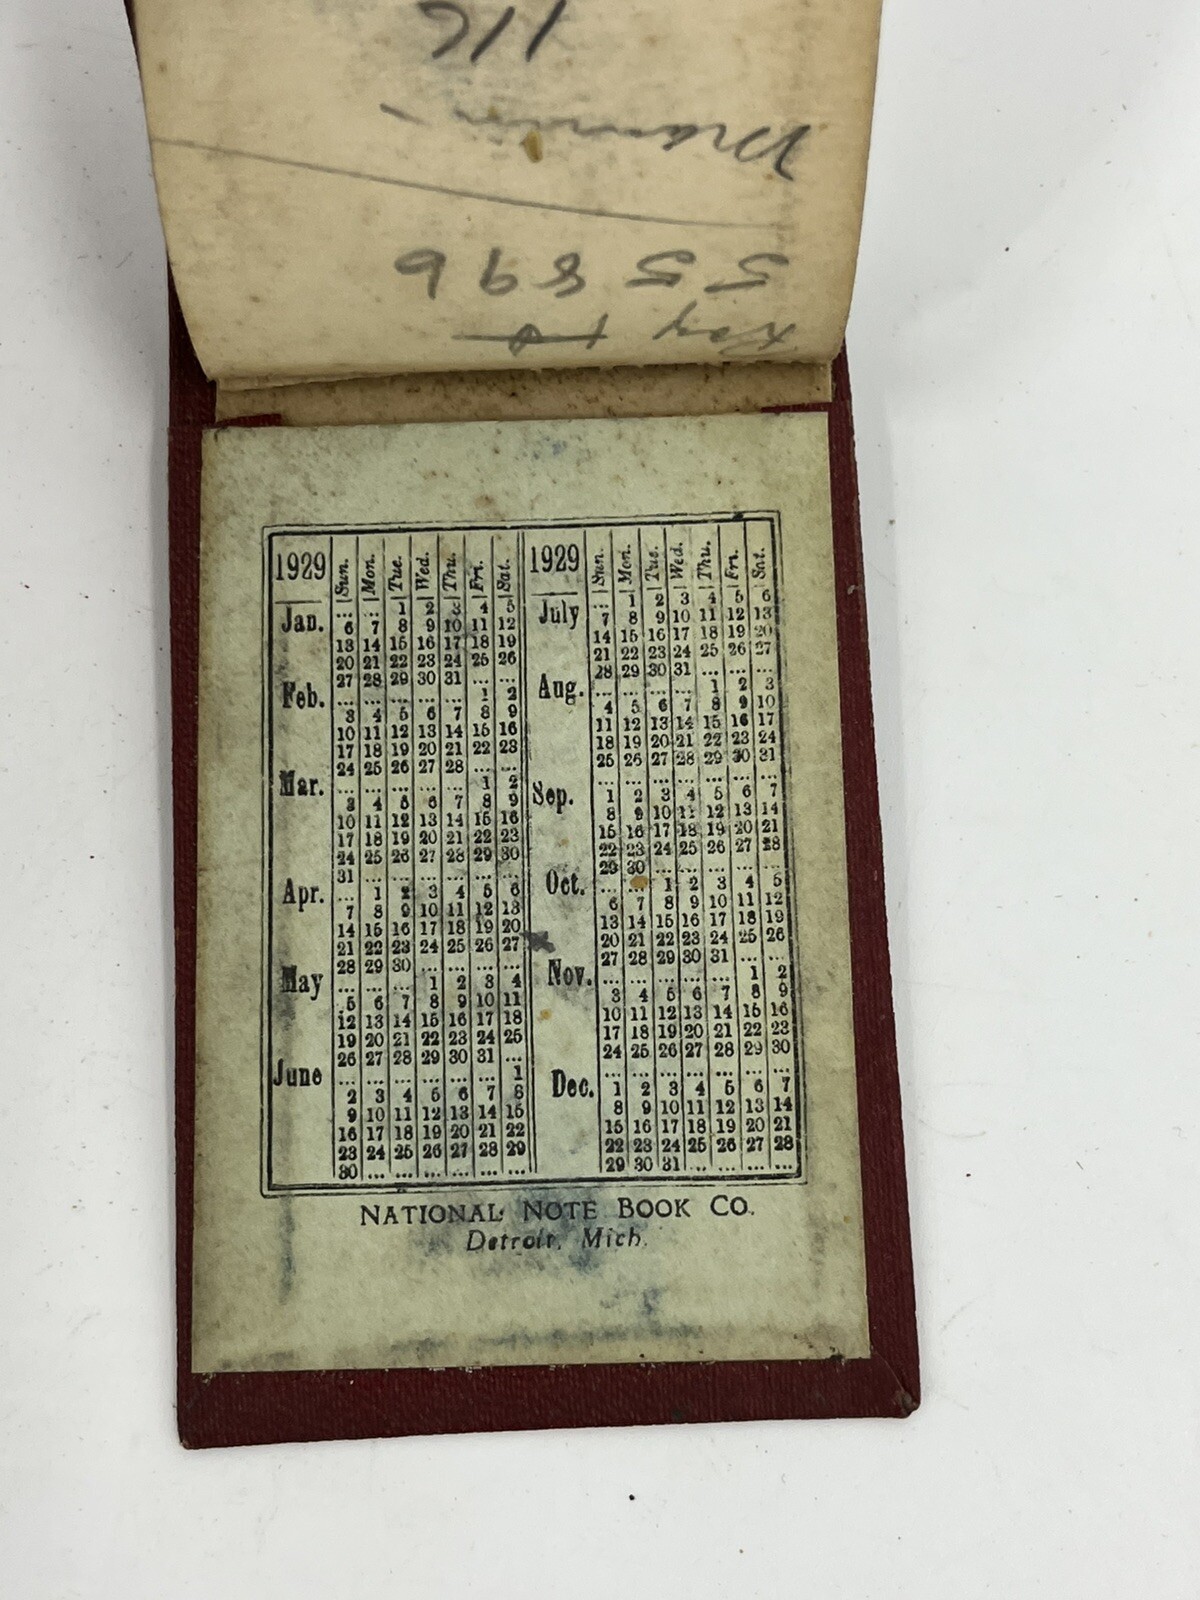 55896
1929 Sun. Mon. Tue. Wed. Thu. Fri. Sat.
Jan. ... ... 1 2 3 4 5
6 7 8 9 10 11 12
13 14 15 16 17 18 19
20 21 22 23 24 25 26
27 28 29 30 31 ... ...
Feb. ... ... ... ... ... 1 2
3 4 5 6 7 8 9
10 11 12 13 14 15 16
17 18 19 20 21 22 23
24 25 26 27 28 ... ...
Mar. ... ... ... ... ... 1 2
3 4 5 6 7 8 9
10 11 12 13 14 15 16
17 18 19 20 21 22 23
24 25 26 27 28 29 30
31 ... ... ... ... ... ...
Apr. ... 1 2 3 4 5 6
7 8 9 10 11 12 13
14 15 16 17 18 19 20
21 22 23 24 25 26 27
28 29 30 ... ... ... ...
May ... ... ... 1 2 3 4
5 6 7 8 9 10 11
12 13 14 15 16 17 18
19 20 21 22 23 24 25
26 27 28 29 30 31 ...
June ... ... ... ... ... ... 1
2 3 4 5 6 7 8
9 10 11 12 13 14 15
16 17 18 19 20 21 22
23 24 25 26 27 28 29
30 ... ... ... ... ... ...
1929 Sun. Mon. Tue. Wed. Thu. Fri. Sat.
July ... 1 2 3 4 5 6
7 8 9 10 11 12 13
14 15 16 17 18 19 20
21 22 23 24 25 26 27
28 29 30 31 ... ... ...
Aug. ... ... ... ... 1 2 3
4 5 6 7 8 9 10
11 12 13 14 15 16 17
18 19 20 21 22 23 24
25 26 27 28 29 30 31
Sep. ... ... ... ... ... ... ...
1 2 3 4 5 6 7
8 9 10 11 12 13 14
15 16 17 18 19 20 21
22 23 24 25 26 27 28
29 30 ... ... ... ... ...
Oct. ... ... 1 2 3 4 5
6 7 8 9 10 11 12
13 14 15 16 17 18 19
20 21 22 23 24 25 26
27 28 29 30 31 ... ...
Nov. ... ... ... ... ... 1 2
3 4 5 6 7 8 9
10 11 12 13 14 15 16
17 18 19 20 21 22 23
24 25 26 27 28 29 30
Dec. ... ... ... ... ... ... ...
1 2 3 4 5 6 7
8 9 10 11 12 13 14
15 16 17 18 19 20 21
22 23 24 25 26 27 28
29 30 31 ... ... ... ...
NATIONAL NOTE BOOK CO.
Detroit, Mich.